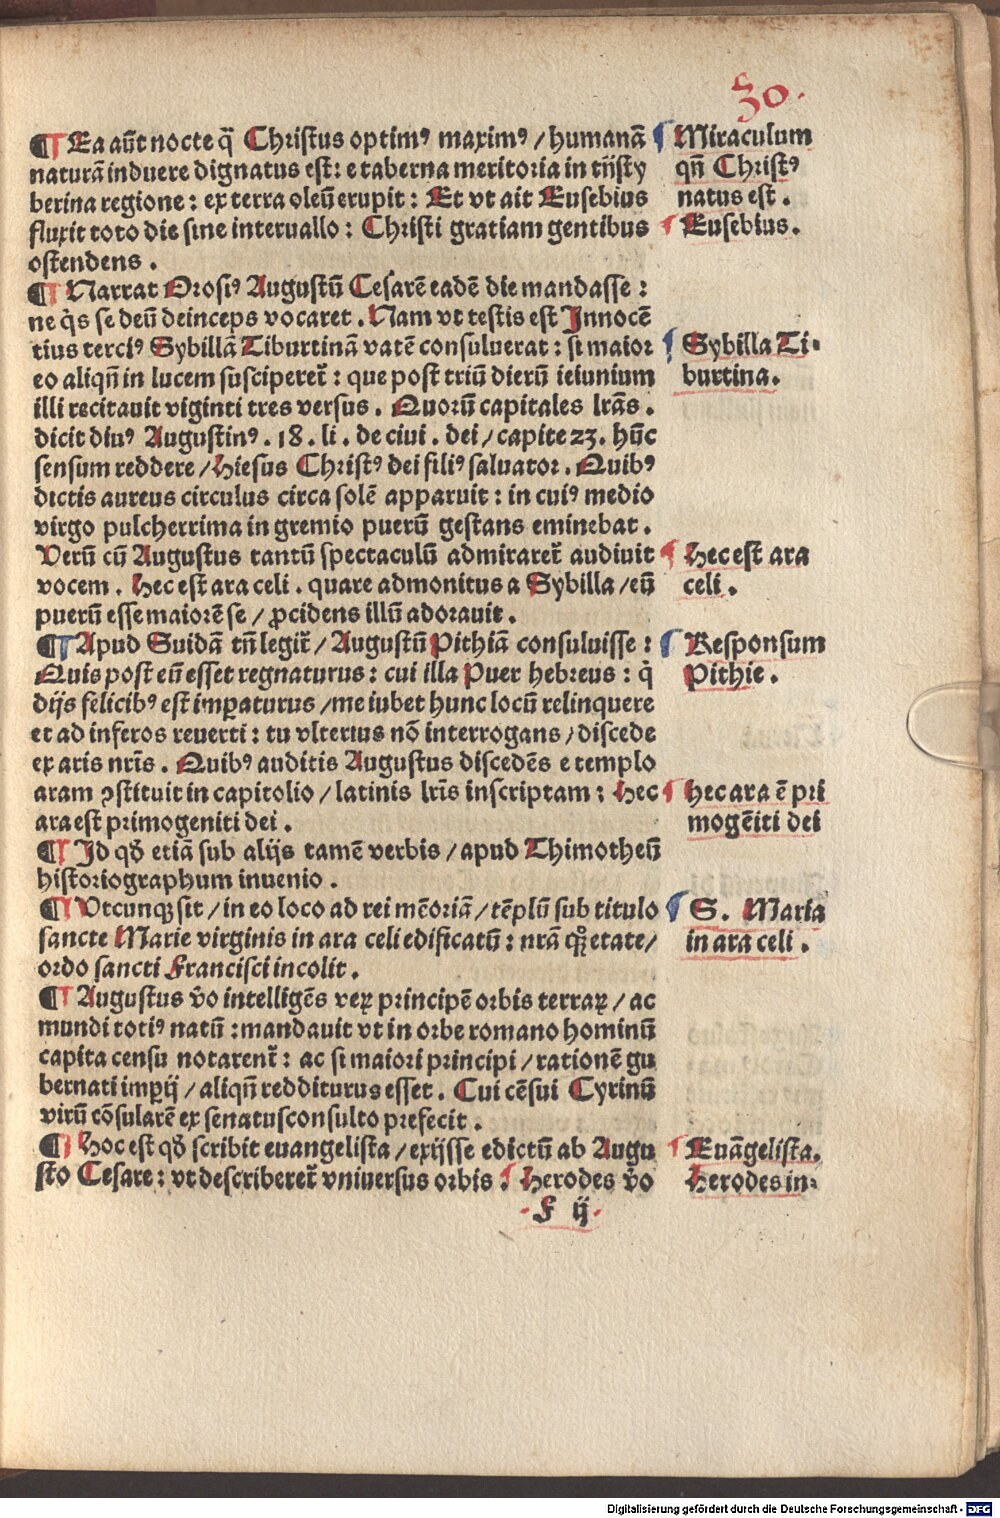 30.
¶ Ea aūt nocte q̄ Christus optimꝰ maximꝰ / humanā
naturā induere dignatus est: e taberna meritoria in trāsty
berina regione: ex terra oleū erupit: Et vt ait Eusebius
fluxit toto die sine interuallo: Christi gratiam gentibus
ostendens.
¶ Narrat Orosiꝰ Augustū Cesarē eadē die mandasse:
ne q̇s se deū deinceps vocaret. Nam vt testis est Innocē
tius terciꝰ Sybillā Tiburtinā vatē consuluerat: si maior
eo aliqn̄ in lucem susciperet᷑: que post triū dierū ieiunium
illi recitauit viginti tres versus. Quorū capitales lr̄as.
dicit diuꝰ Augustinꝰ. 18. li. de ciui. dei / capite 23. hūc
sensum reddere / Hiesus Christꝰ dei filiꝰ saluator. Quibꝰ
dictis aureus circulus circa solē apparuit: in cuiꝰ medio
virgo pulcherrima in gremio puerū gestans eminebat.
Verū cū Augustus tantū spectaculū admiraret᷑ audiuit
vocem. Hec est ara celi. quare admonitus a Sybilla / eū
puerū esse maiorē se / ꝓcidens illū adorauit.
¶ Apud Suidā tn̄ legit᷑ / Augustū Pithiā consuluisse:
Quis post eū esset regnaturus: cui illa Puer hebreus: q̇
dijs felicibꝰ est imꝑaturus / me iubet hunc locū relinquere
et ad inferos reuerti: tu vlterius nō interrogans / discede
ex aris nr̄is. Quibꝰ auditis Augustus discedēs e templo
aram ꝯstituit in capitolio / latinis lr̄is inscriptam: Hec
ara est primogeniti dei.
¶ Id qđ etiā sub alijs tamē verbis / apud Thimotheū
historiographum inuenio.
¶ Vtcunqꝫ sit / in eo loco ad rei mēoriā / tēplū sub titulo
sancte Marie virginis in ara celi edificatū: nrā qꝫ etate /
ordo sancti Francisci incolit.
¶ Augustus v̄o intelligēs veꝝ principē orbis terraꝝ / ac
mundi totiꝰ natū: mandauit vt in orbe romano hominū
capita censu notarent᷑: ac si maiori principi / rationē gu
bernati imꝑij / aliqn̄ redditurus esset. Cui cēsui Cyrinū
virū cōsularē ex senatusconsulto prefecit.
¶ Hoc est qđ scribit euangelista / exijsse edictū ab Augu
sto Cesare: vt describeret᷑ vniuersus orbis. Herodes v̄o
F ij
Miraculum
qn̄ Christꝰ
natus est.
Eusebius.
Sybilla Ti-
burtina.
Hec est ara
celi.
Responsum
Pithie.
hec ara ē pri
mogēiti dei
S. Maria
in ara celi.
Euāgelista.
Herodes in-
Digitalisierung gefördert durch die Deutsche Forschungsgemeinschaft - DFG